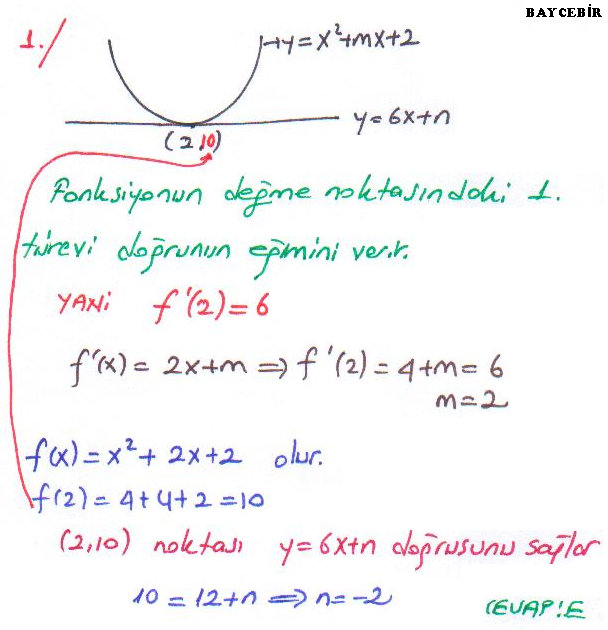 BAYCEBİR
1./
y=x²+mx+2
y=6x+n
(2 10)
Fonksiyonun değme noktasındaki 1.
türevi doğrunun eğimini verir.
YANİ f'(2)=6
f'(x)= 2x+m ⇒ f'(2)=4+m=6
m=2
f(x)=x²+ 2x+2 olur.
f(2)= 4+4+2=10
(2,10) noktası y=6x+n doğrusunu sağlar
10=12+n ⇒ n=-2
CEVAP:E